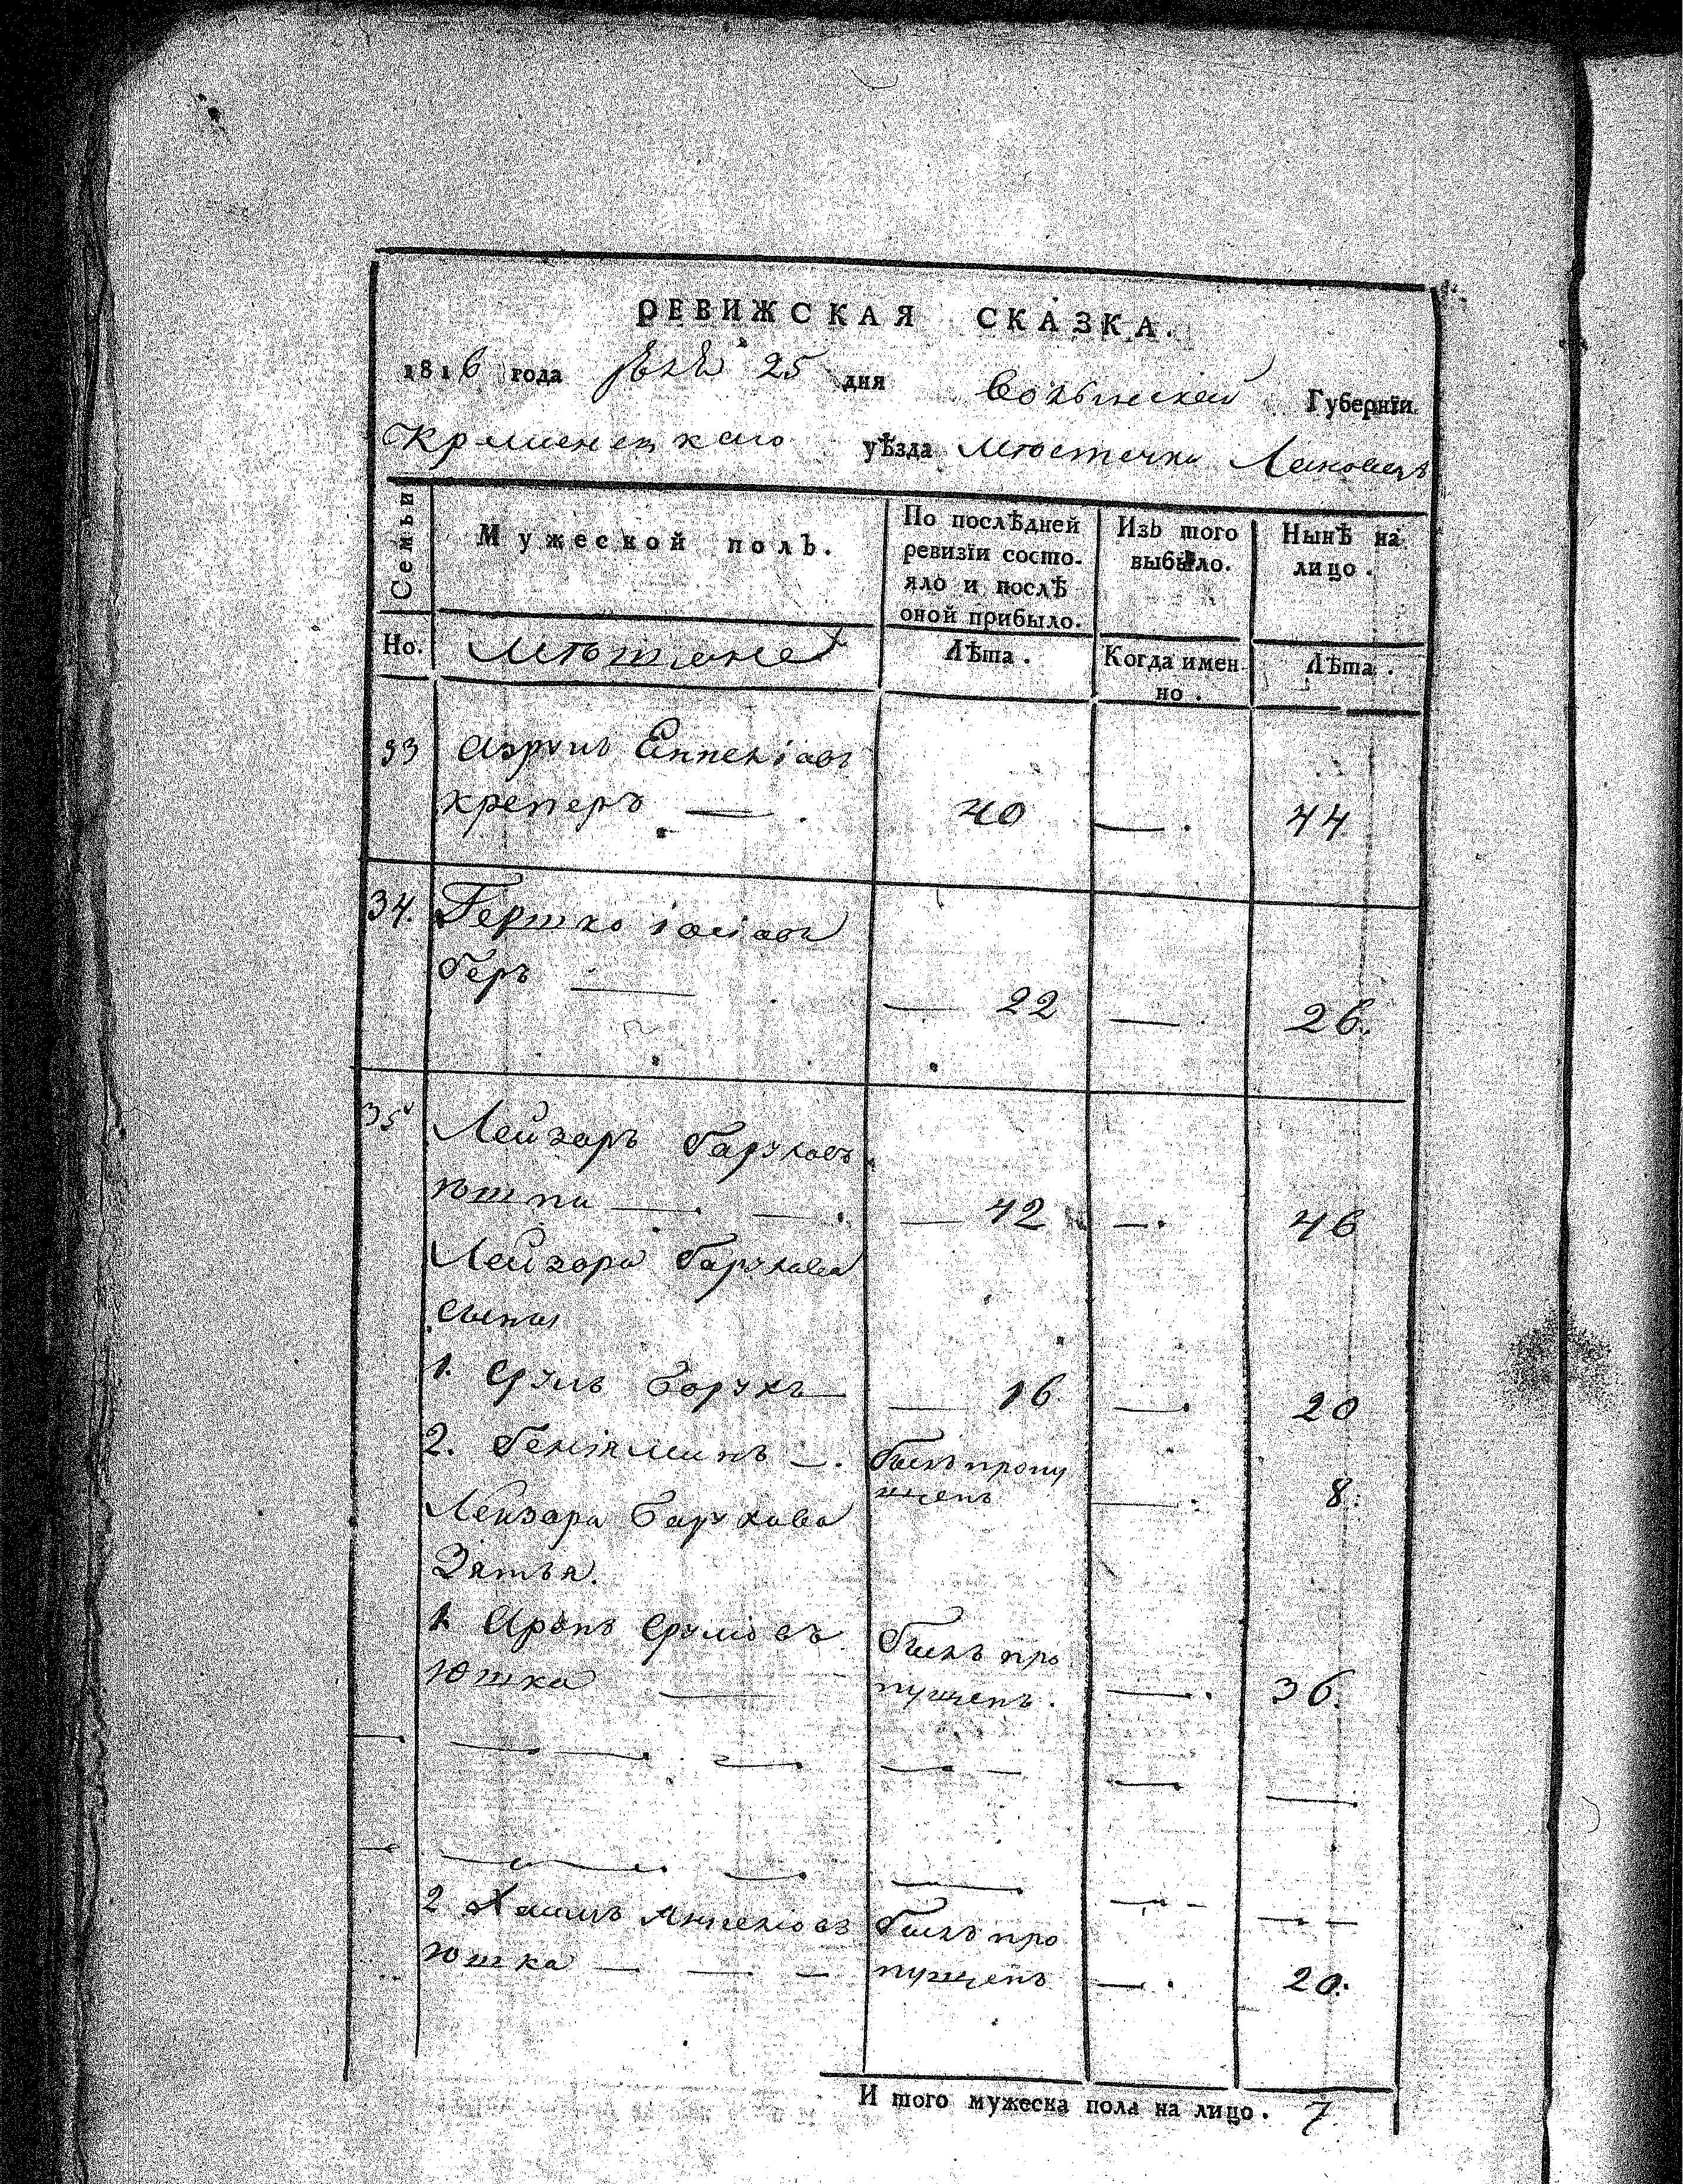 РЕВИЖСКАЯ СКАЗКА.
1816 года 25 дня Волынской Губернїи.
Кременецкаго уѣзда Мѣстечка Лановецъ
Семьи
Мужеской полъ.
По послѣдней ревизїи состо-
яло и послѣ
оной прибыло.
Изъ того
выбыло.
Нынѣ на
лицо.
Но.
Мѣщане
Лѣта.
Когда имен
но.
Лѣта.
33
креперъ — 40 — 44
34. Гершко
беръ — 22 — 26.
35 Лейзоръ Баруховъ
— 42 — 46
Лейзора Барухова
сыны
1. Сруль Борухъ — 16 — 20
2. Бениаминъ — былъ пропу
щенъ — 8.
Лейзора Барухова
Зятья.
1. Аронъ Срулiовъ былъ про
Юшка — пущенъ. — 36.
2 Хаимъ былъ про
юшка — пущенъ — 20.
И того мужеска пола на лицо. 7